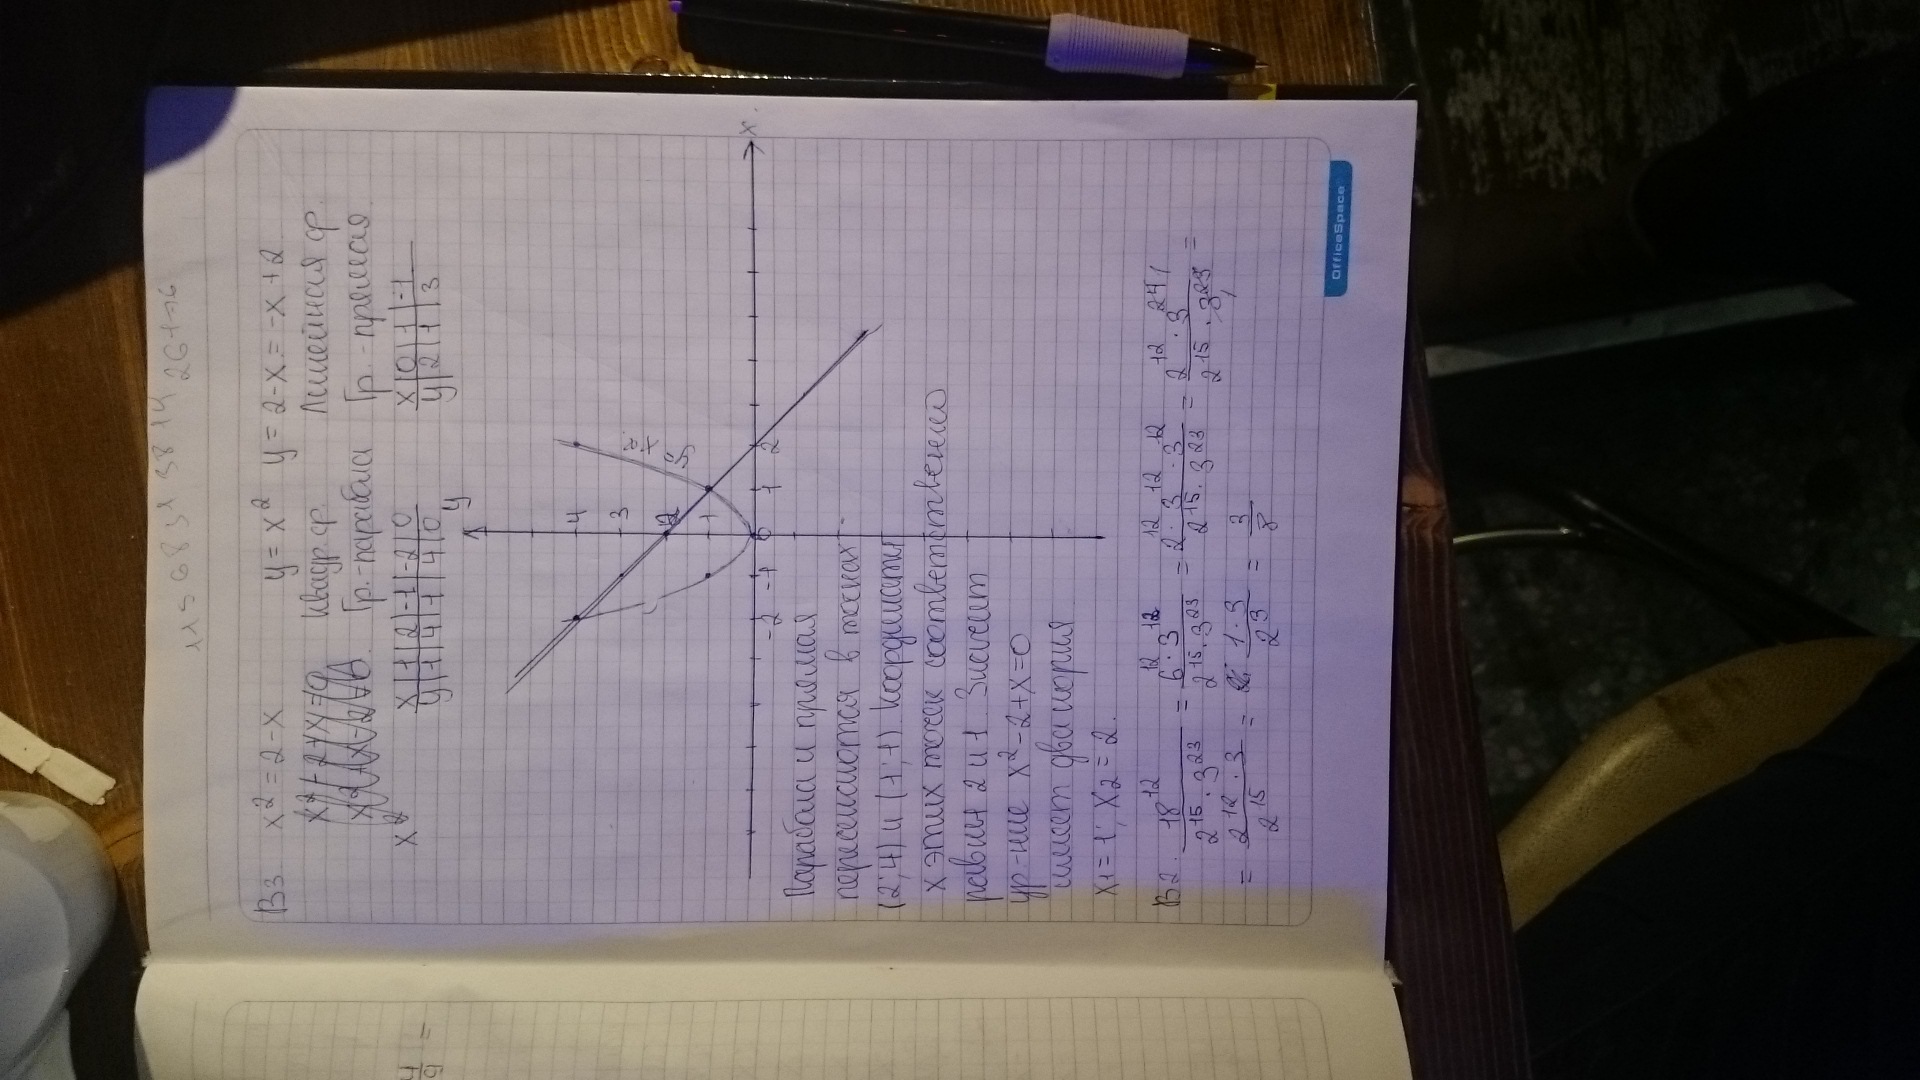 В3 x² = 2 - x y = x² y = 2 - x = -x + 2
Квадр ср. Линейная ср.
Гр. - парабола Гр. - прямая
x | 1 | 2 | -1 | -2 | 0
y | 1 | 4 | 1 | 4 | 0
x | 0 | 1 | -1
y | 2 | 1 | 3
y
4
3
2
1
-2 -1 0 1 2
x
y = x²
Парабола и прямая
пересекаются в точках
(2; 4) и (1; 1). Координаты
x этих точек соответственно
равны 2 и 1. Значит
ур-ние x² - 2 + x = 0
имеет два корня
x₁ = 1; x₂ = 2.
В2. 18¹² / 2¹⁵ · 3²³ = 6¹² · 3¹² / 2¹⁵ · 3²³ = 2¹² · 3¹² · 3¹² / 2¹⁵ · 3²³ = 2¹² · 3²⁴ / 2¹⁵ · 3²³ =
= 2¹² · 3 / 2¹⁵ = 1 · 3 / 2³ = 3 / 8
OfficeSpace
4 / 9 =